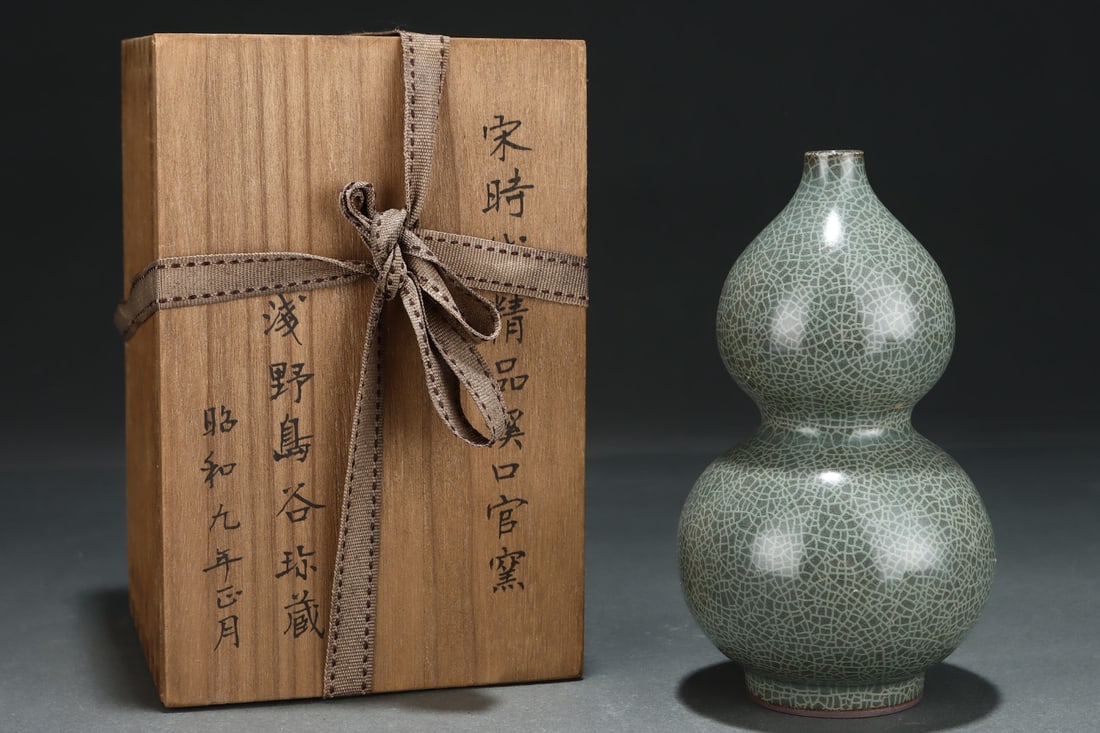 宋時精品溪口官窯
淺野島谷珎蔵
昭和九年正月